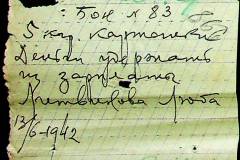 : Бон № 83
5 клг. картошки
Деньги удержать
из зарплаты
Литвинова Люба
13/6-1942